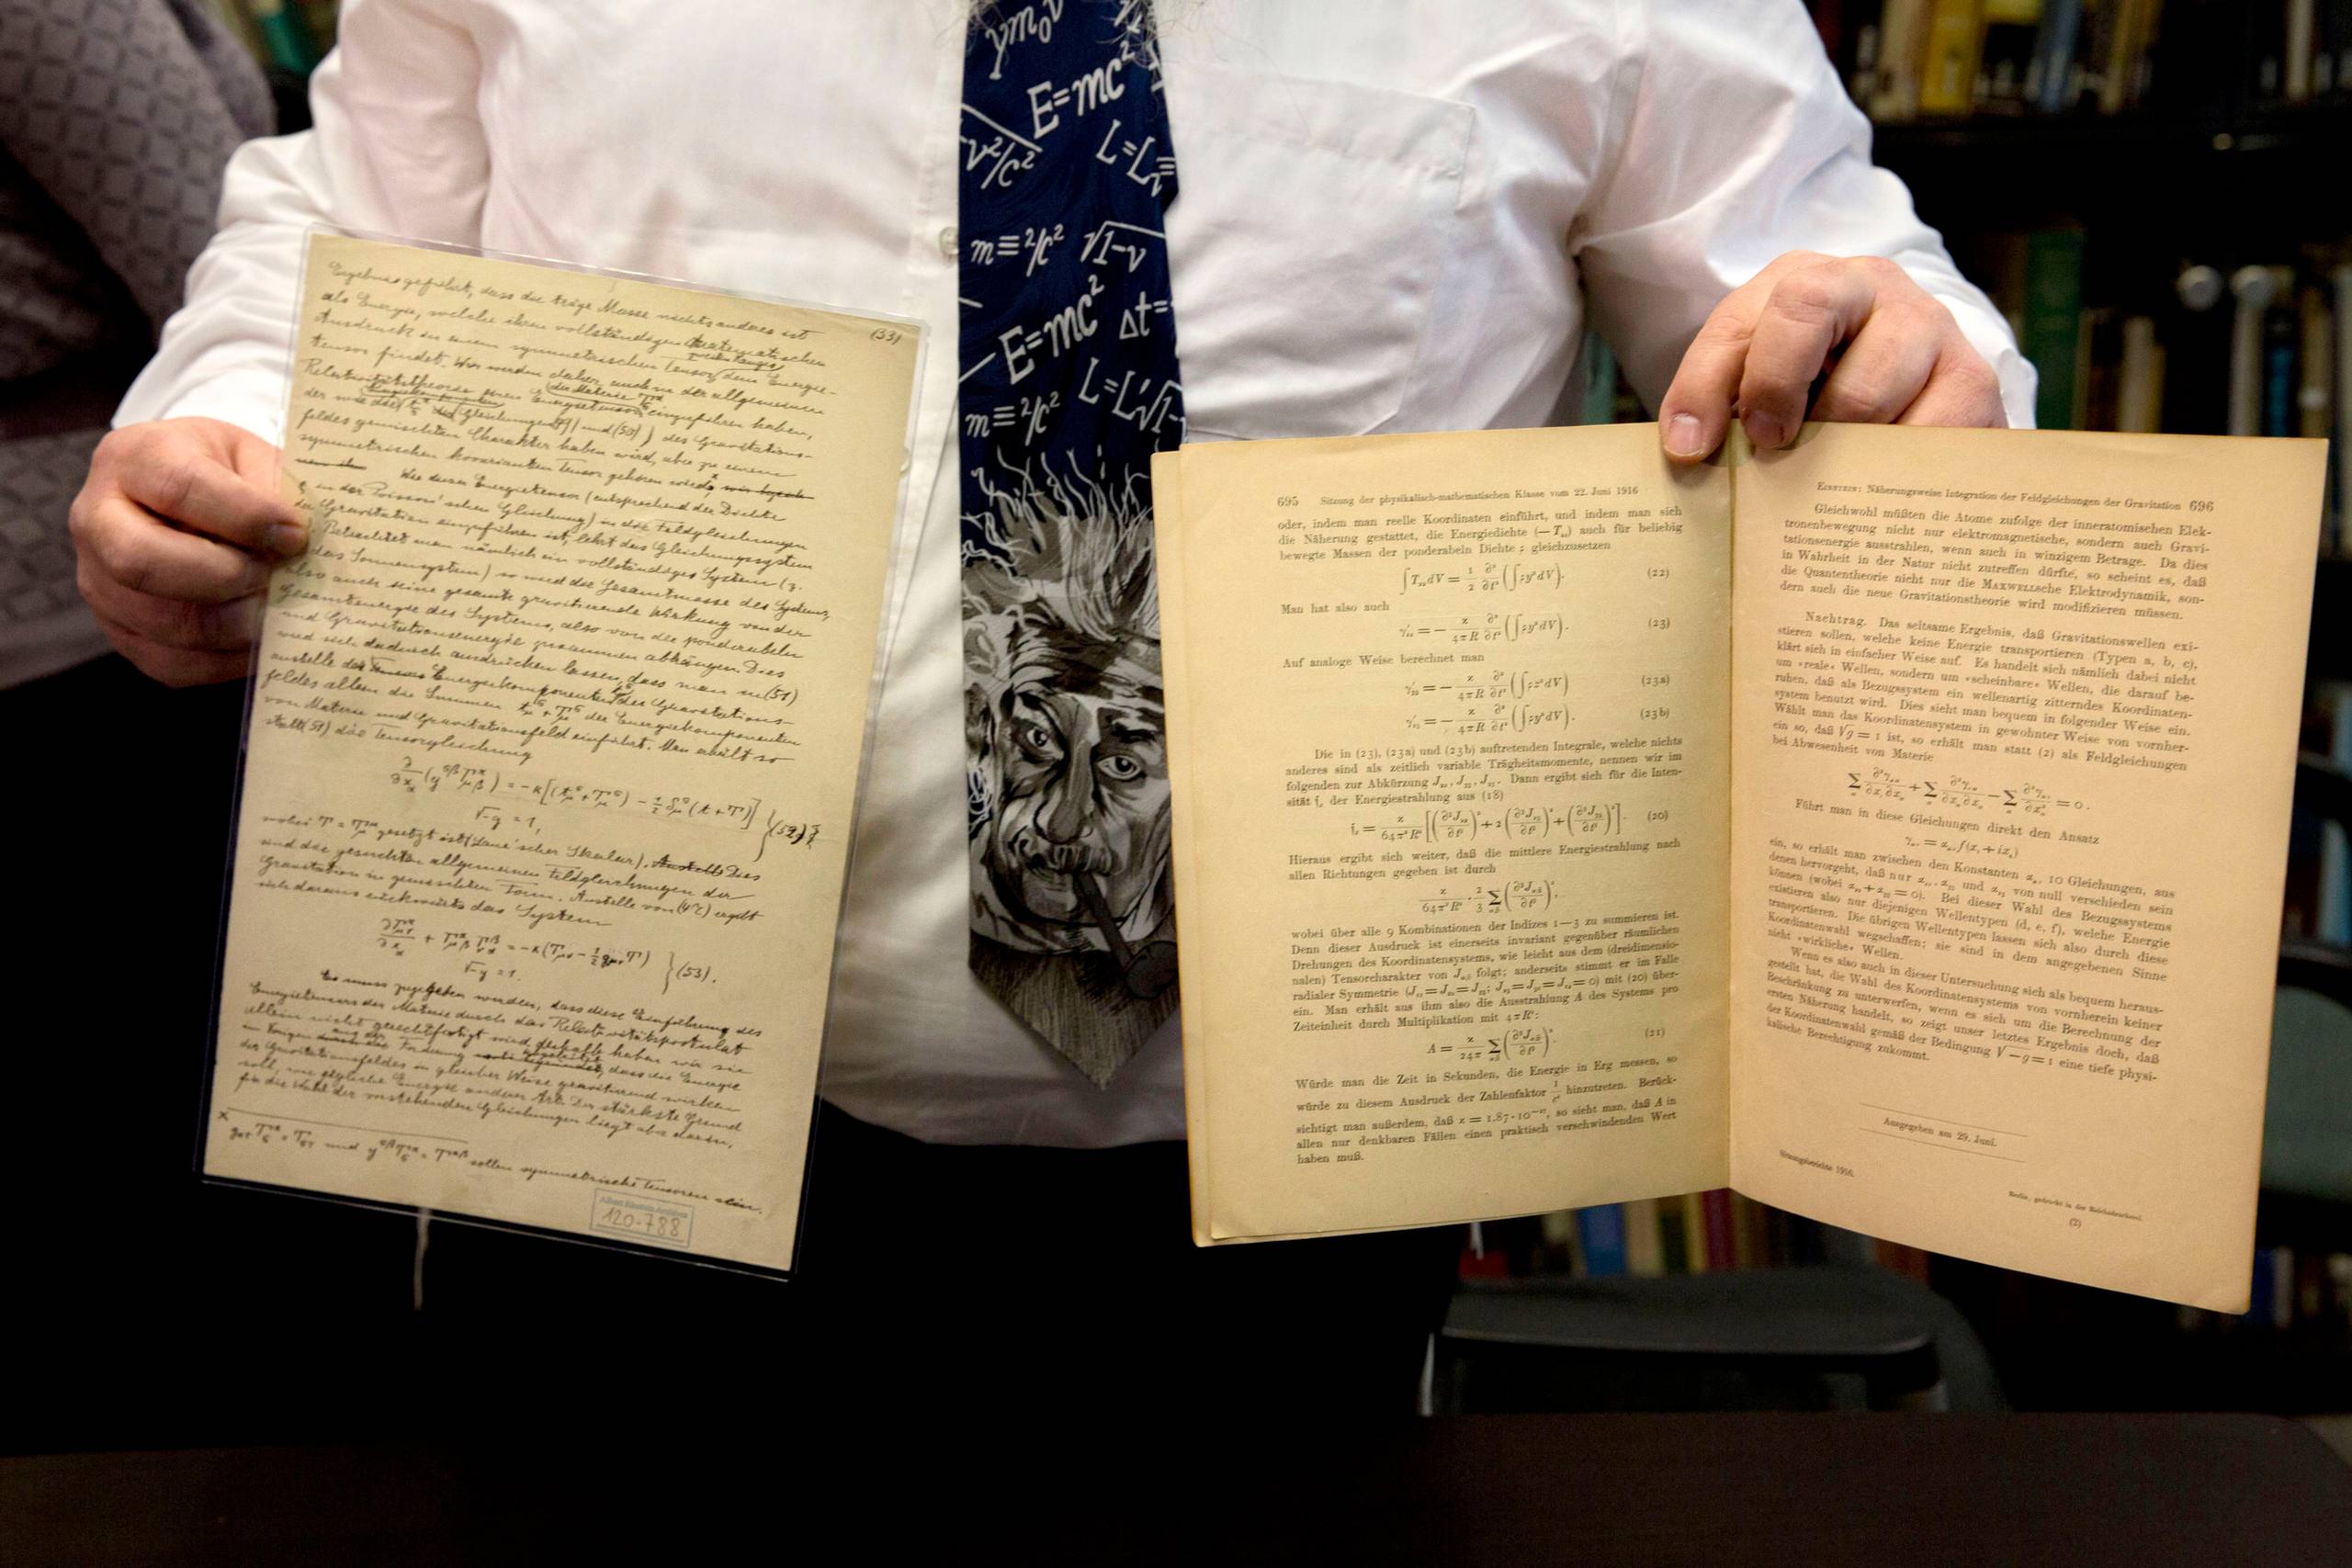 γm₀v
E=mc²
v²/c²
L=L
m≡²/c² √1-v
E=mc² Δt=
L=L'√1-
m≡²/c²
(33)
Ergebnis geführt, dass die träge Masse nichts anderes ist
als Energie, welche ihren vollständigen mathematischen
Ausdruck in einem symmetrischen Tensor zweiten Ranges, dem Energie-
tensor findet. Wir werden daher auch in der allgemeinen
Relativitätstheorie einen Energietensor der Materie einzuführen haben,
Gleichungen und (50)) des Gravitations-
feldes gemischten Charakter haben wird, aber zu einem
symmetrischen kovarianten Tensor gehören wird
Wie dieser Energietensor (entsprechend der Dichte
in der Poisson'schen Gleichung) in die Feldgleichungen
der Gravitation einzuführen ist, lehrt das Gleichungssystem
Betrachtet man nämlich ein vollständiges System (z.
das Sonnensystem) so wird die Gesamtmasse des Systems,
also auch seine gesamte gravitierende Wirkung von der
Gesamtenergie des Systems, also von der ponderabeln
und Gravitationsenergie zusammen abhängen. Dies
wird sich dadurch ausdrücken lassen, dass man in (51)
anstelle der Energiekomponenten des Gravitations-
feldes allein die Summen t_μ^σ + T_μ^σ der Energiekomponenten
von Materie und Gravitationsfeld einführt. Man erhält so
statt (51) die Tensorgleichung
∂/∂x_α (g^{σβ} Γ^α_{μβ}) = -κ[(t_μ^σ + T_μ^σ) - ½ δ_μ^σ (t + T)]
√-g = 1,
} (52)
wobei T = T_μ^μ gesetzt ist (Laue'scher Skalar). Dies
sind die gesuchten allgemeinen Feldgleichungen der
Gravitation in gemischter Form. Anstelle von (47) ergibt
sich daraus rückwärts das System
∂Γ^α_{μν}/∂x_α + Γ^α_{μβ} Γ^β_{να} = -κ(T_{μν} - ½ g_{μν} T)
√-g = 1.
} (53).
Es muss zugegeben werden, dass diese Einführung des
Energietensors der Materie durch das Relativitätspostulat
allein nicht gerechtfertigt wird; deshalb haben wir sie
im Vorigen aus der Forderung abgeleitet, dass die Energie
des Gravitationsfeldes in gleicher Weise gravitierend wirken
soll, wie jegliche Energie anderer Art. Der stärkste Grund
für die Wahl der vorstehenden Gleichungen liegt aber darin,
sollen symmetrische Tensoren sein.
Albert Einstein Archives
120-788
695 Sitzung der physikalisch-mathematischen Klasse vom 22. Juni 1916
oder, indem man reelle Koordinaten einführt, und indem man sich
die Näherung gestattet, die Energiedichte (—T₄₄) auch für beliebig
bewegte Massen der ponderabeln Dichte ρ gleichzusetzen
∫T₂₂dV = 1/2 ∂²/∂t² (∫ρy²dV). (22)
Man hat also auch
γ'₂₂ = − ϰ/4πR ∂²/∂t² (∫ρy²dV). (23)
Auf analoge Weise berechnet man
γ'₃₃ = − ϰ/4πR ∂²/∂t² (∫ρz²dV) (23a)
γ'₂₃ = − ϰ/4πR ∂²/∂t² (∫ρyzdV). (23b)
Die in (23), (23a) und (23b) auftretenden Integrale, welche nichts
anderes sind als zeitlich variable Trägheitsmomente, nennen wir im
folgenden zur Abkürzung J₂₂, J₃₃, J₂₃. Dann ergibt sich für die Inten-
sität fₓ der Energiestrahlung aus (18)
fₓ = ϰ/64π²R² [(∂³J₂₂/∂t³)² + 2(∂³J₂₃/∂t³)² + (∂³J₃₃/∂t³)²]. (20)
Hieraus ergibt sich weiter, daß die mittlere Energiestrahlung nach
allen Richtungen gegeben ist durch
ϰ/64π²R² · 2/3 ∑ (∂³J_αβ/∂t³)²,
wobei über alle 9 Kombinationen der Indizes 1—3 zu summieren ist.
Denn dieser Ausdruck ist einerseits invariant gegenüber räumlichen
Drehungen des Koordinatensystems, wie leicht aus dem (dreidimensio-
nalen) Tensorcharakter von J_αβ folgt; anderseits stimmt er im Falle
radialer Symmetrie (J₁₁ = J₂₂ = J₃₃; J₂₃ = J₃₁ = J₁₂ = 0) mit (20) über-
ein. Man erhält aus ihm also die Ausstrahlung A des Systems pro
Zeiteinheit durch Multiplikation mit 4πR²:
A = ϰ/24π ∑ (∂³J_αβ/∂t³)². (21)
Würde man die Zeit in Sekunden, die Energie in Erg messen, so
würde zu diesem Ausdruck der Zahlenfaktor 1/c⁴ hinzutreten. Berück-
sichtigt man außerdem, daß ϰ = 1.87·10⁻²⁷, so sieht man, daß A in
allen nur denkbaren Fällen einen praktisch verschwindenden Wert
haben muß.
Einstein: Näherungsweise Integration der Feldgleichungen der Gravitation 696
Gleichwohl müßten die Atome zufolge der inneratomischen Elek-
tronenbewegung nicht nur elektromagnetische, sondern auch Gravi-
tationsenergie ausstrahlen, wenn auch in winzigem Betrage. Da dies
in Wahrheit in der Natur nicht zutreffen dürfte, so scheint es, daß
die Quantentheorie nicht nur die Maxwellsche Elektrodynamik, son-
dern auch die neue Gravitationstheorie wird modifizieren müssen.
Nachtrag. Das seltsame Ergebnis, daß Gravitationswellen exi-
stieren sollen, welche keine Energie transportieren (Typen a, b, c),
klärt sich in einfacher Weise auf. Es handelt sich nämlich dabei nicht
um »reale« Wellen, sondern um »scheinbare« Wellen, die darauf be-
ruhen, daß als Bezugssystem ein wellenartig zitterndes Koordinaten-
system benutzt wird. Dies sieht man bequem in folgender Weise ein.
Wählt man das Koordinatensystem in gewohnter Weise von vornher-
ein so, daß √g = 1 ist, so erhält man statt (2) als Feldgleichungen
bei Abwesenheit von Materie
∑ ∂²γ_μα/∂x_ν∂x_α + ∑ ∂²γ_να/∂x_μ∂x_α − ∑ ∂²γ_μν/∂x_α² = 0.
Führt man in diese Gleichungen direkt den Ansatz
γ_μν = α_μν f(x₁ + ix₄)
ein, so erhält man zwischen den Konstanten α_μν 10 Gleichungen, aus
denen hervorgeht, daß nur α₂₂, α₃₃ und α₂₃ von null verschieden sein
können (wobei α₂₂ + α₃₃ = 0). Bei dieser Wahl des Bezugssystems
existieren also nur diejenigen Wellentypen (d, e, f), welche Energie
transportieren. Die übrigen Wellentypen lassen sich also durch diese
Koordinatenwahl wegschaffen; sie sind in dem angegebenen Sinne
nicht »wirkliche« Wellen.
Wenn es also auch in dieser Untersuchung sich als bequem heraus-
gestellt hat, die Wahl des Koordinatensystems von vornherein keiner
Beschränkung zu unterwerfen, wenn es sich um die Berechnung der
ersten Näherung handelt, so zeigt unser letztes Ergebnis doch, daß
der Koordinatenwahl gemäß der Bedingung √−g = 1 eine tiefe physi-
kalische Berechtigung zukommt.
Ausgegeben am 29. Juni.
Sitzungsberichte 1916.
Berlin, gedruckt in der Reichsdruckerei.
(2)